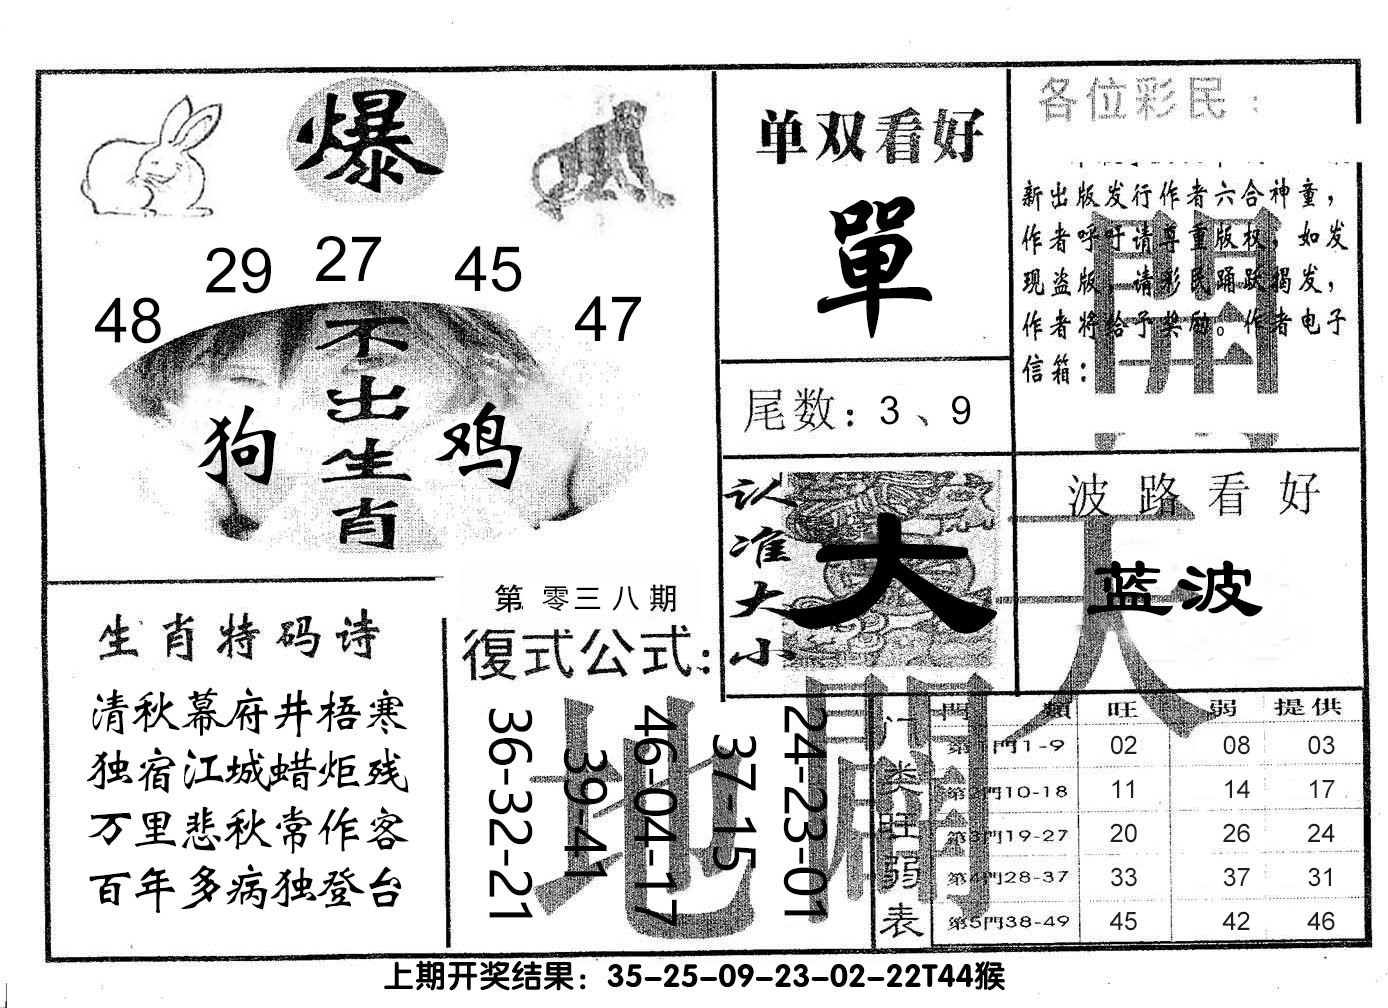 爆
48 29 27 45 47
不出生肖
狗 鸡
生肖特码诗
清秋幕府井梧寒
独宿江城蜡炬残
万里悲秋常作客
百年多病独登台
第零三八期
復式公式：
36-32-21
39-41
46-04-17
37-15
24-23-01
单双看好
單
尾数：3、9
认准大小
大
各位彩民：
新出版发行作者六合神童，
作者呼吁请尊重版权，如发
现盗版，请彩民踊跃揭发，
作者将给予奖励。作者电子
信箱：
波路看好
蓝波
天地
開
门类旺弱表
門類 旺 弱 提供
第1門1-9 02 08 03
第2門10-18 11 14 17
第3門19-27 20 26 24
第4門28-37 33 37 31
第5門38-49 45 42 46
上期开奖结果：35-25-09-23-02-22T44猴